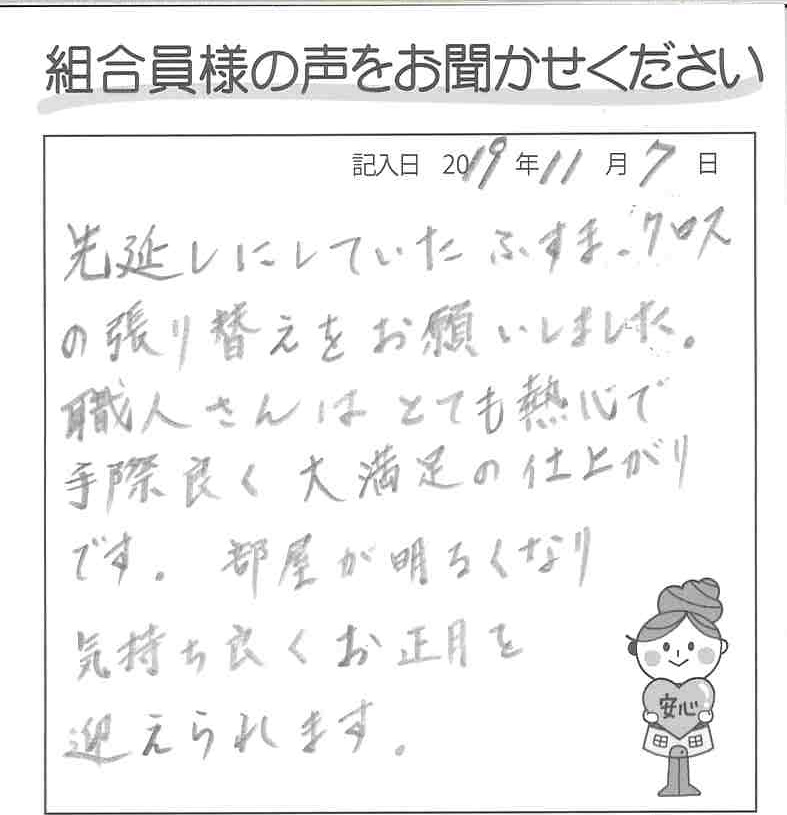 組合員様の声をお聞かせください
記入日 2019年11月7日
先延しにしていた ふすま、クロス
の張り替えをお願いしました。
職人さんは とても熱心で
手際良く 大満足の仕上がり
です。 部屋が明るくなり
気持ち良くお正月を
迎えられます。
安心